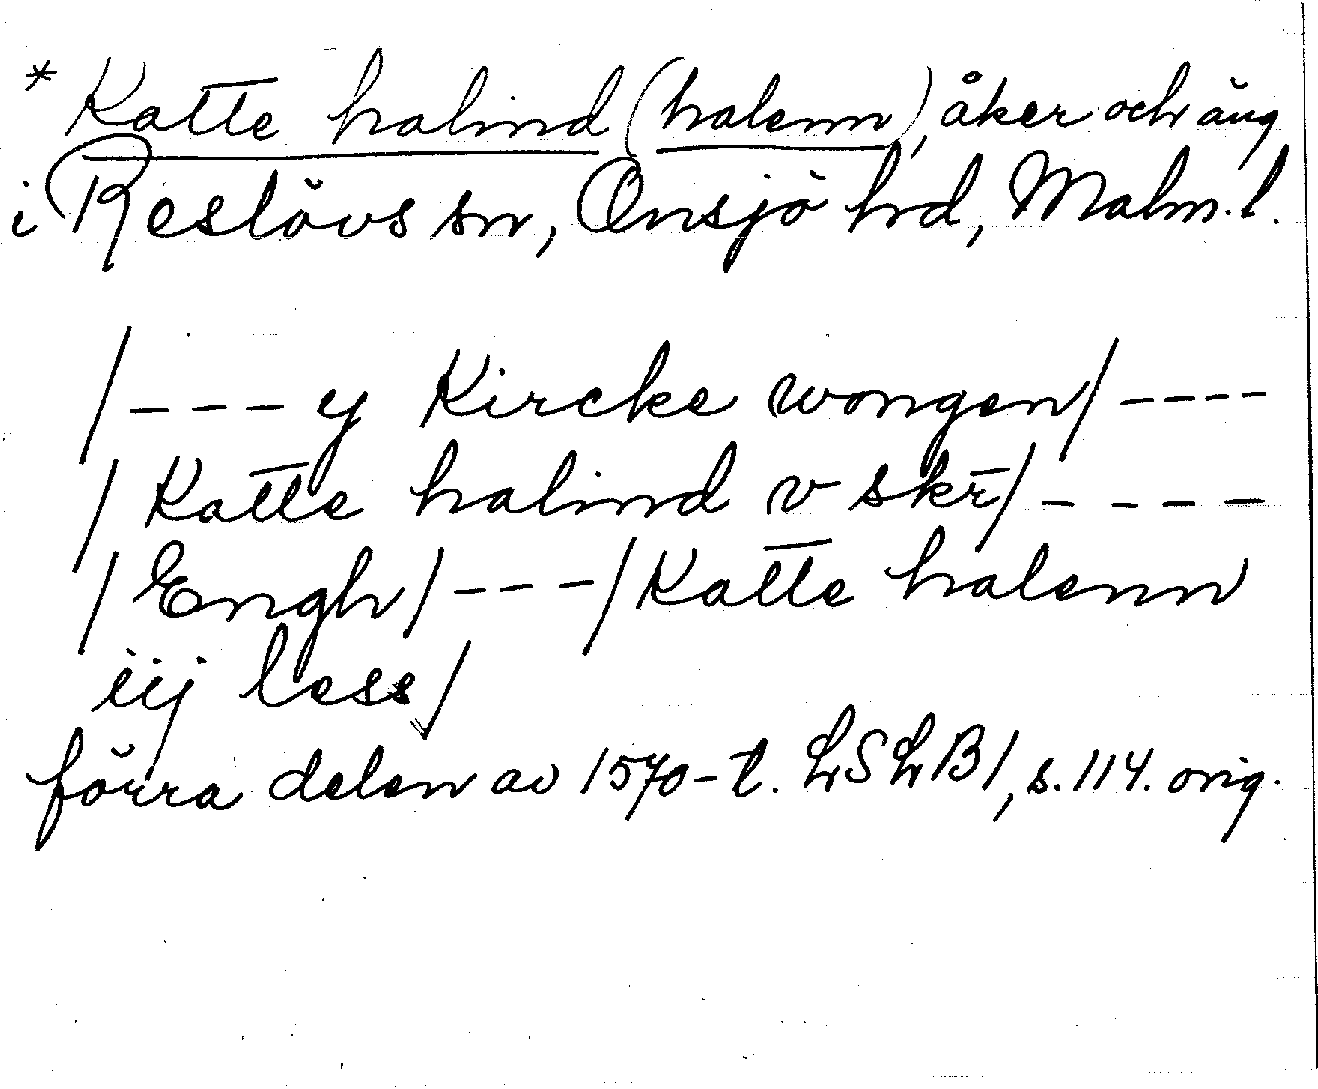 * Katte halind (halenn), åker och äng
i Reslövs sn, Onsjö hd, Malm. l.
/ - - - y Kircke wongen / - - - -
/ Katte halind v skr̄ / - - - -
/ Engh / - - - / Katte halenn
iij less /
förra delen av 1570-t. LSLB1, s. 114. orig.